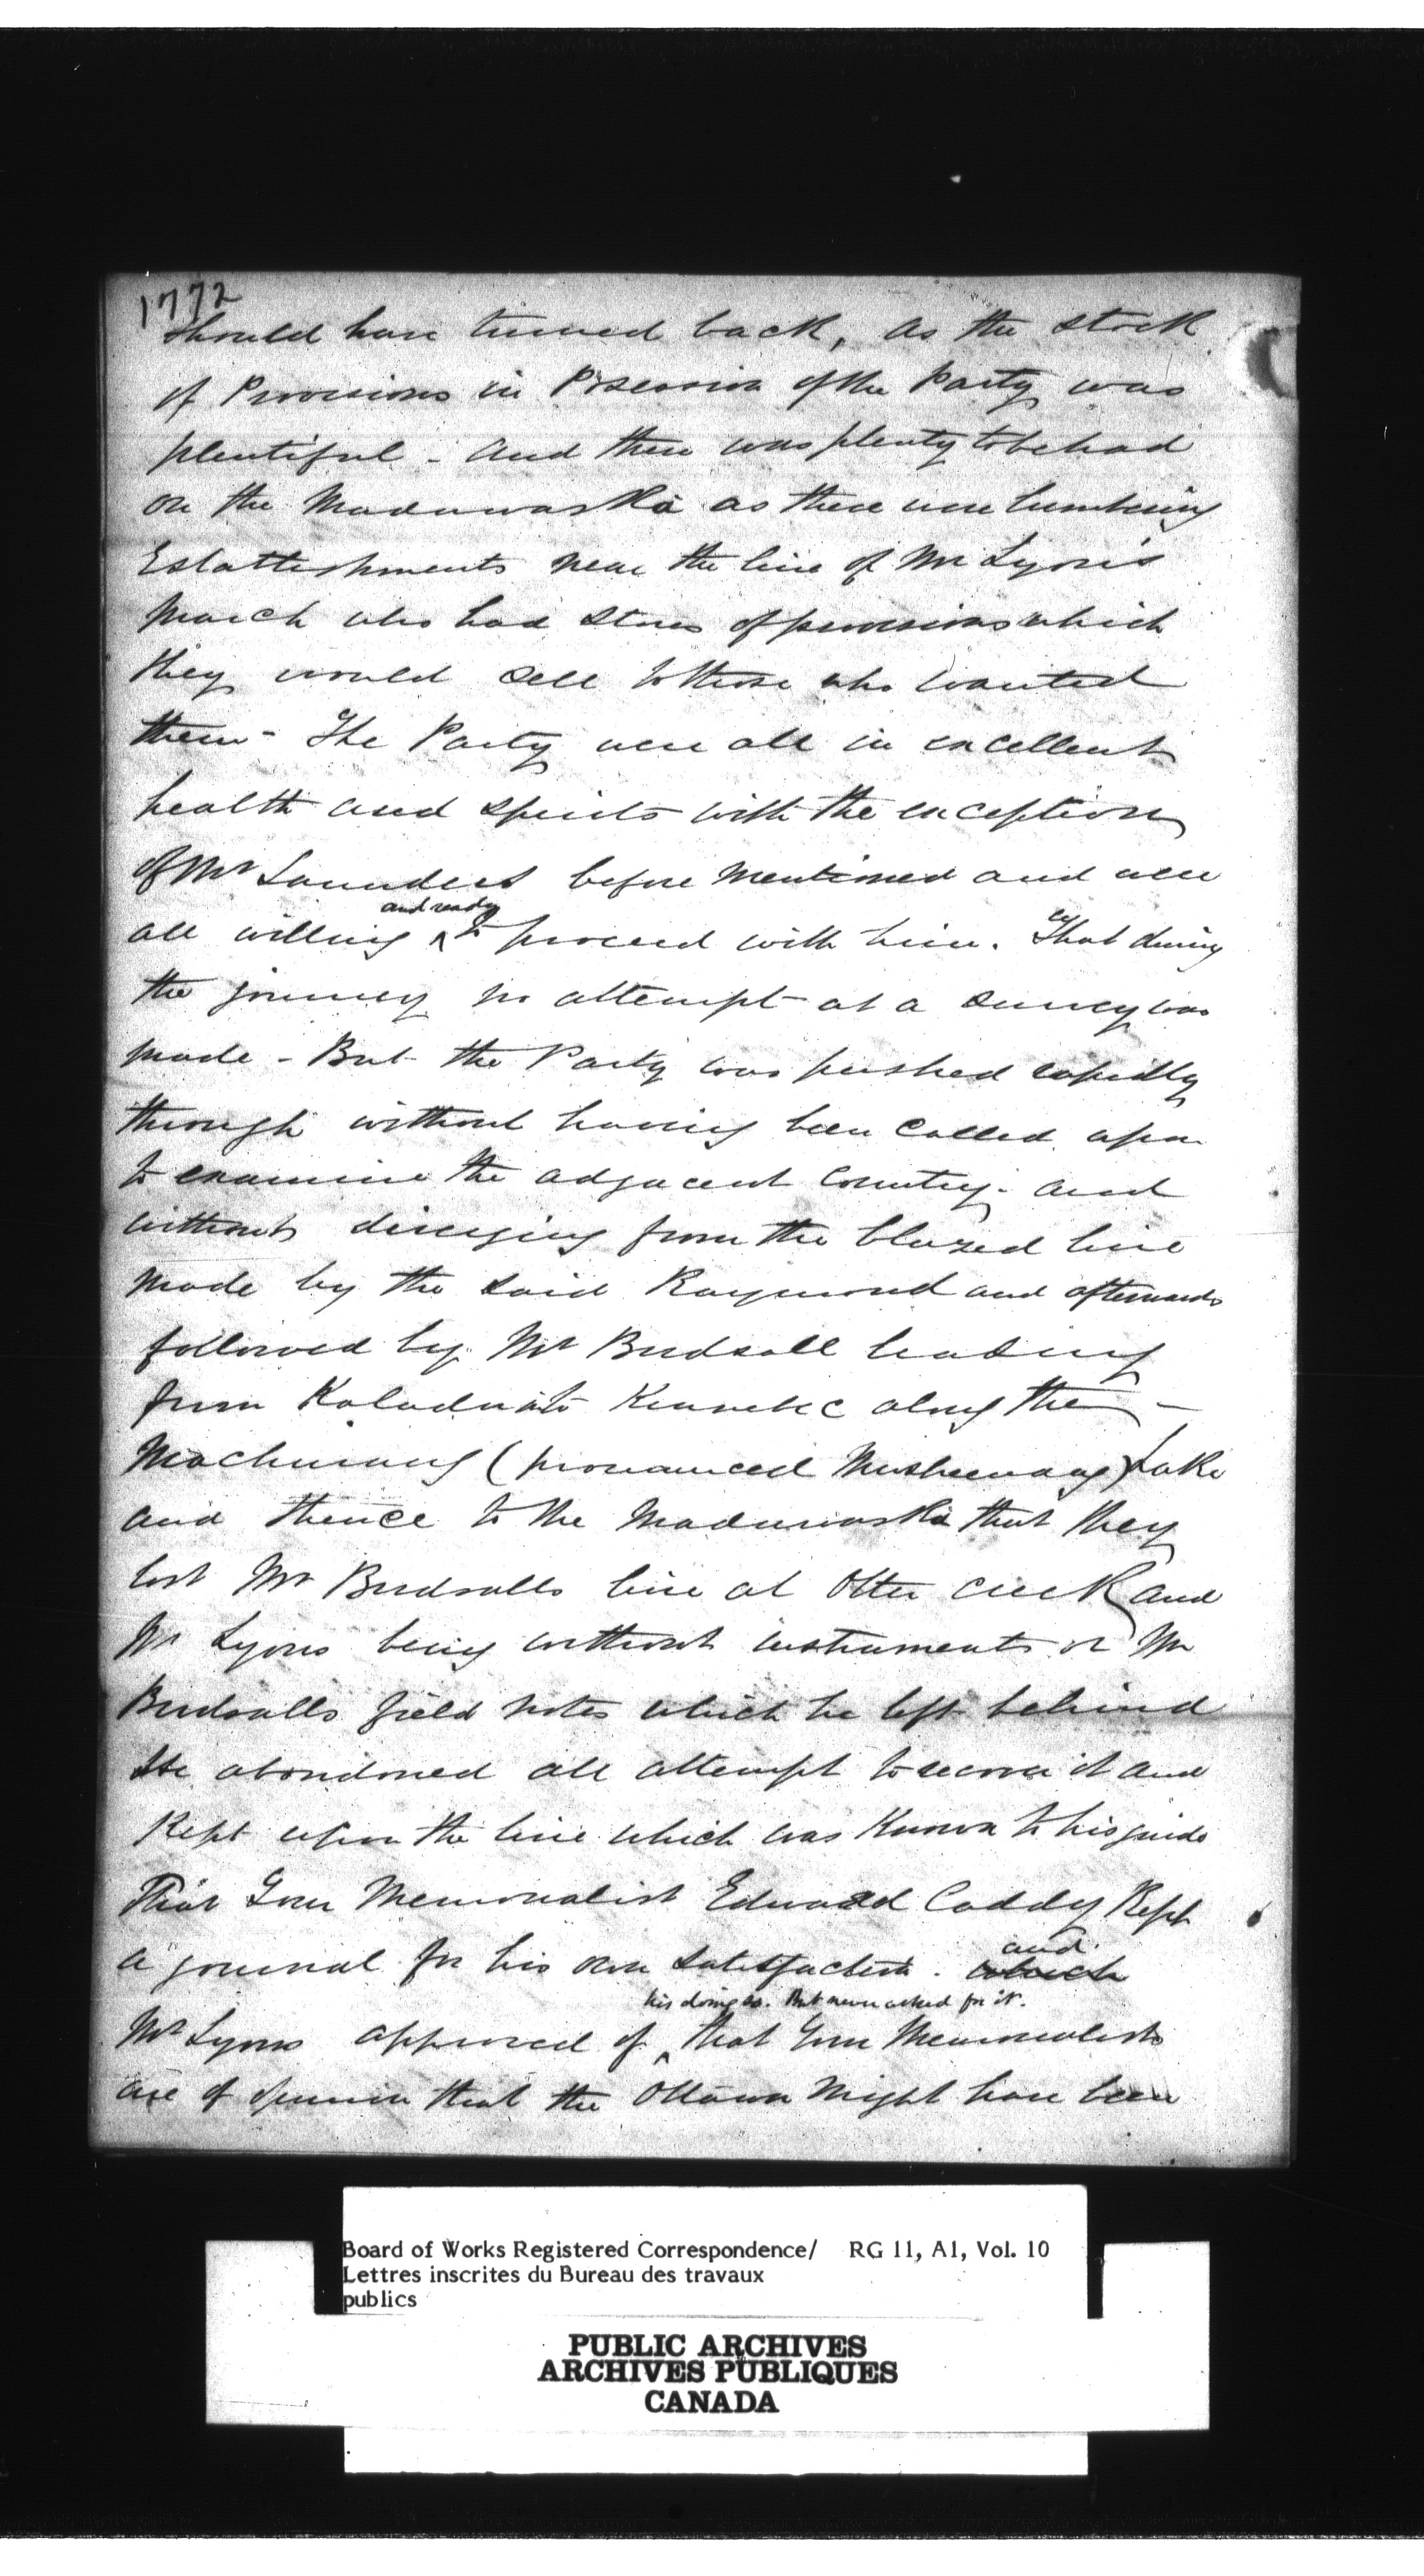 1772
should have turned back, as the stock
of Provisions in Possession of the Party was
plentiful - and there was plenty to be had
on the Madawaska as there were lumbering
Establishments near the line of Mr Lyon's
March who had stores of provisions which
they would sell to those who wanted
them - The Party were all in excellent
health and spirits with the exception
of Mr Saunders before mentioned and were
and ready
all willing ^ to proceed with him. That during
the journey no attempt at a survey was
made - But the Party was pushed rapidly
through without having been called upon
to examine the adjacent Country - and
without diverging from the blazed line
made by the said Raymond and afterwards
followed by Mr Birdsall leading
from to along the -
(pronounced ) Lake
and thence to the Madawaska that they
lost Mr Birdsalls line at Otter creek and
Mr Lyons being without instruments or Mr
Birdsalls field notes which he left behind
He abondoned all attempt to recover it and
Kept upon the line which was Known to his guide
That Your Memorialist Edward Caddy Kept
and
a journal for his own satisfaction. which
his doing so. But never asked for it.
Mr Lyons approved of ^ that Your Memorialists
are of opinion that the Ottawa Might have been
Board of Works Registered Correspondence/ RG 11, A1, Vol. 10
Lettres inscrites du Bureau des travaux
publics
PUBLIC ARCHIVES
ARCHIVES PUBLIQUES
CANADA